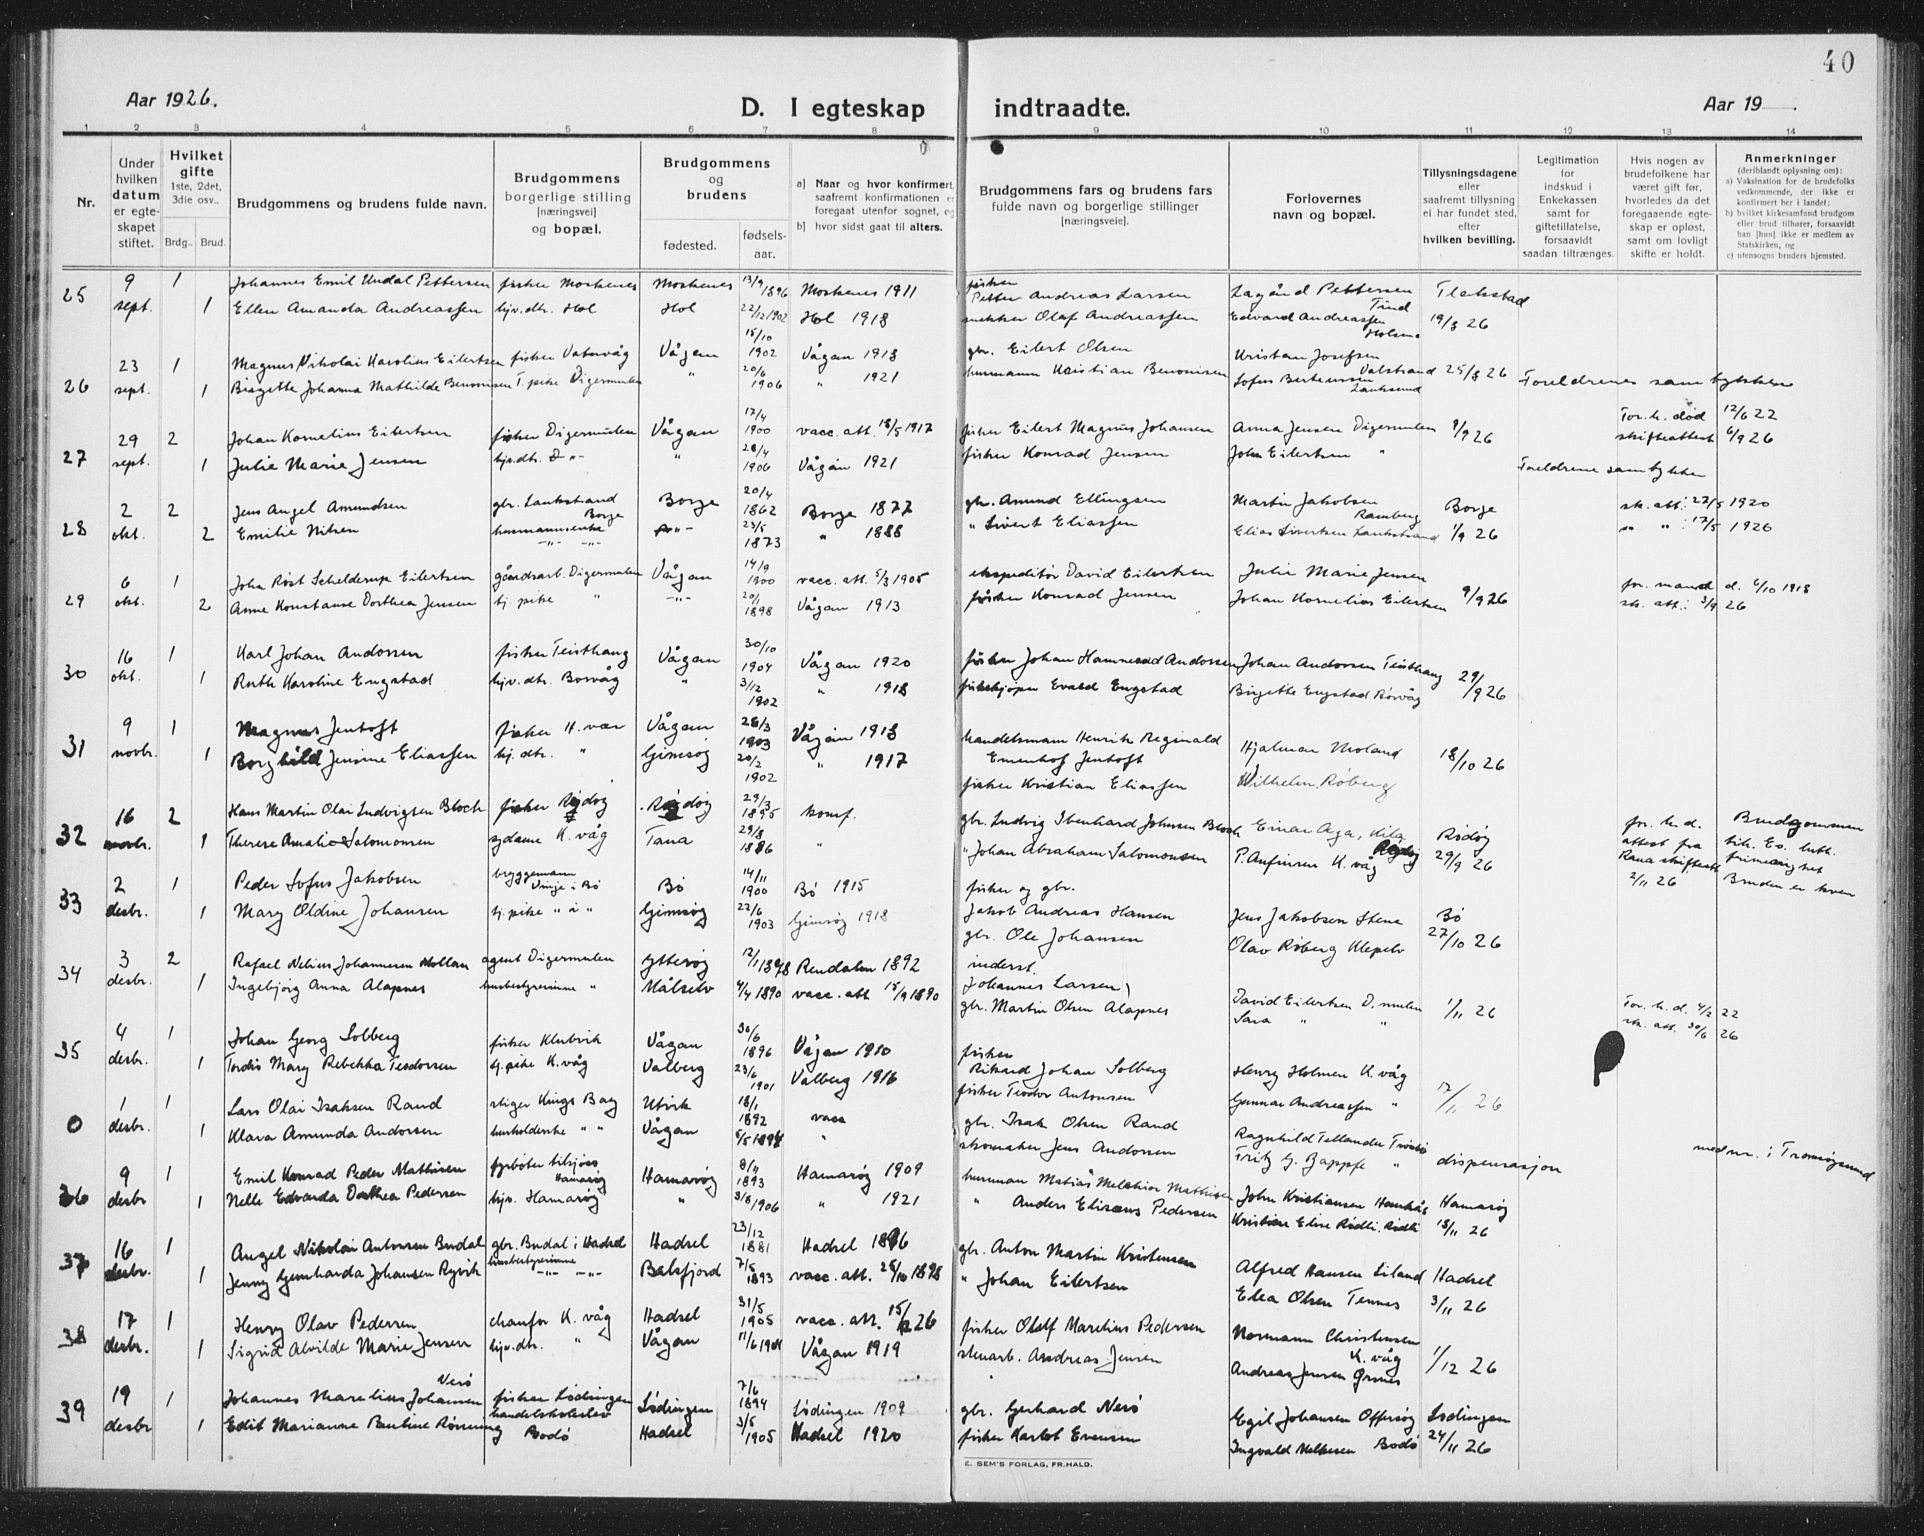 40
Aar 1926.
D. I egteskap indtraadte.
Aar 19 .
1 2 3 4 5 6 7 8 9 10 11 12 13 14
Nr.
Under hvilken datum er egteskapet stiftet.
Hvilket gifte 1ste, 2det, 3die osv..
Brdg.. Brud.
Brudgommens og brudens fulde navn.
Brudgommens borgerlige stilling [næringsvei] og bopæl.
Brudgommens og brudens
fødested. fødsels-aar.
a] Naar og hvor konfirmert, saafremt konfirmationen er foregaat utenfor sognet, og
b] hvor sidst gaat til alters.
Brudgommens fars og brudens fars fulde navn og borgerlige stillinger [næringsveie].
Forlovernes navn og bopæl.
Tillysningsdagene eller saafremt tillysning ei har fundet sted, efter hvilken bevilling.
Legitimation for indskud i Enkekassen samt for giftetillatelse, forsaavidt saadan tiltrænges.
Hvis nogen av brudefolkene har været gift før, hvorledes da det foregaaende egteskap er opløst, samt om lovligt skifte er holdt.
Anmerkninger (deriblandt oplysning om):
a) Vaksination for de brudefolks vedkommende, der ikke er konfirmert her i landet;
b) hvilket kirkesamfund brudgom eller brud tilhører, forsaavidt han [hun] ikke er medlem av Statskirken, og
c) utensogns bruders hjemsted.
25 9 sept. 1 Johannes Emil Undal Pettersen fisker Moskenes Moskenes 13/9 1896 Moskenes 1911 fisker Petter Andreas Larsen Lagånd Pettersen Tind Flakstad
1 Ellen Amanda Andreassen hjv. dtr. Hol Hol 22/12 1902 Hol 1918 snekker Olaf Andreassen Edvard Andreassen Holsmo 19/8 26
26 23 sept. 1 Magnus Nikolai Karolius Eilertsen fisker Vatervåg Vågan 15/10 1902 Vågan 1918 gbr. Eilert Olsen Kristian Josefsen Valstrand 25/8 26
1 Birgitte Johanna Mathilde Benonisen T. pike Digermulen " 20/6 1906 " 1921 husmann Kristian Benonisen Sofus Berteussen Laukstrand Foreldrenes samtykke
27 29 sept. 2 Johan Kornelius Eilertsen fisker Digermulen Vågan 17/4 1900 vacc. att. 18/5 1917 fisker Eilert Magnus Johansen Anna Jensen Digermulen 9/9 26 For. h. død 12/6 22 skifteattest 6/9 26
1 Julie Marie Jensen hjv. dtr. D -"- " 28/4 1906 Vågan 1921 fisker Konrad Jensen John Eilertsen " Foreldrene samtykker
28 2 okt. 2 Jens Angel Amundsen gbr. Laukstrand Borge Borge 20/4 1862 Borge 1877 gbr. Amund Ellingsen Martin Jakobsen Ramberg Borge sk. att. 27/5 1920
2 Emilie Nilsen husmannsenke -"- -"- -"- 23/5 1873 " 1888 " Sivert Eliassen Elias Sivertsen Laukstrand 1/9 26 " " 17/5 1926
29 6 okt. 1 John Røst Schelderup Eilertsen gårdsarb. Digermulen Vågan 14/9 1900 vacc. att. 5/3 1905 ekspeditør David Eilertsen Julie Marie Jensen 9/9 26 for. mand d. 6/10 1918
2 Anne Konstanse Dorthea Jensen tj. pike " -"- 20/1 1898 Vågan 1913 fisker Konrad Jensen Johan Kornelius Eilertsen sk. att.: 3/9 26
30 16 okt. 1 Karl Johan Andorsen fisker Teisthaug Vågan 30/10 1904 Vågan 1920 fisker Johan Hammersad Andorsen Johan Andorsen Teisthaug 29/9 26
1 Ruth Karoline Engstad hjv. dtr. Borvåg " 3/12 1902 " 1918 fiskekjøper Evald Engstad Birgitte Engstad Rørvåg
31 9 novbr. 1 Magnus Jentoft fisker H. vær Vågan 28/3 1903 Vågan 1918 handelsmann Henrik Reginald Emenhof Jentoft Hjalmar Moland 18/10 26
1 Borghild Jensine Eliassen hj. dtr. " Gimsøy 20/2 1902 " 1917 fisker Kristian Eliassen Wilhelm Røberg
32 16 novbr. 2 Hans Martin Olai Ludvigsen Bloch fisker Rødøy Rødøy 29/3 1895 konf. gbr. Ludvig Ibenhard Johnsen Bloch Einar Aga, Rødøy Rødøy for. h. d. attest fra Rana skifterett 2/11 26 Brudgommen tilh. Ev. luth. frimenighet
1 Therese Amalie Salomonsen sydame K. våg Tana 29/8 1886 " " Johan Abraham Salomonsen P. Anfinsen K. våg 29/9 26 Bruden er kven
33 2 desbr. 1 Peder Sofus Jakobsen bryggemann Vinje i Bø Bø 14/11 1900 Bø 1915 fisker og gbr. Jakob Andreas Hansen Jens Jakobsen Stene Bø
1 Mary Oldine Johansen tj. pike " i " Gimsøy 22/6 1903 Gimsøy 1918 gbr. Ole Johansen Olav Røberg Klepelv 27/10 26
34 3 desbr. 2 Rafael Nelius Johannesen Mollan agent Digermulen Ytterøy 12/1 1878 Rendalen 1892 inderst. Johannes Larsen David Eilertsen D. mulen 1/11 26 For. h. d. 4/2 22
1 Ingebjørg Anna Alapnes husbestyrerinne " Målselv 4/4 1890 vacc. att 15/9 1890 gbr. Martin Olsen Alapnes Sara " " sk. att. 30/6 26
35 4 desbr. 1 Johan Georg Solberg fisker Klubvik Vågan 30/6 1896 Vågan 1910 fisker Rikard Johan Solberg Henry Holmen K. våg 17/11 26
1 Tordis Mary Rebekka Teodorsen tj. pike K. våg Valberg 23/6 1901 Valberg 1916 fisker Teodor Antonsen Gunnar Andreassen "
0 1 desbr. 1 Lars Olai Isaksen Rand stiger Kings Bay Utvik 18/1 1892 vacc gbr. Isak Olsen Rand Ragnhild Tellander Tromsø dispensasjon med nr. i Tromsøysund
1 Klara Amunda Andorsen husholderske " " Vågan 5/5 1894 " skomaker Jens Andorsen Fritz G. Zappfe "
36 9 desbr 1 Emil Konrad Peder Mathisen fyrbøter tilsjøss Hamarøy Hamarøy 8/11 1893 Hamarøy 1909 husmann Matias Melchior Mathisen John Kristiansen Hamarøy
1 Nelle Edvarda Dorthea Pedersen hjv. Hamarøy " 3/8 1906 " 1921 " Anders Eliseus Pedersen Kristine Elise Rødli. Rødli 18/11 26
37 16 desbr. 1 Angel Nikolai Antonsen Budal gbr. Budal i Hadsel Hadsel 23/12 1881 Hadsel 1896 gbr. Anton Martin Kristensen Alfred Hansen Liland Hadsel
1 Jenny Gunharda Johansen Ryvik husbestyrerinne -"- -"- Balsfjord 7/5 1893 vacc. att. 25/10 1898 " Johan Eilertsen Elea Olsen Tennes 3/11 26
38 17 desbr. 1 Henry Olav Pedersen chaufør K. våg Hadsel 31/5 1905 vacc. att. 15/12 26 fisker Olaf Marelius Pedersen Normann Christensen K. våg 1/12 26
1 Sigrid Alvilde Marie Jensen hjv. dtr. " Vågan 11/6 1904 Vågan 1919 stenarb. Andreas Jensen Andreas Jensen Ørsnes
39 19 desbr 1 Johannes Marelius Johansen Nesø fisker Lødingen Lødingen 7/6 1894 Lødingen 1909 gbr. Gerhard Nesø Egil Johansen Offersøy Lødingen
1 Edit Marianne Pauline Rørening handelsholeelev Bodø Hadsel 3/5 1905 Hadsel 1920 fisker Karlot Evensen Ingvald Mellesen Bodø 24/11 26
E. SEM'S FORLAG, FR.HALD.